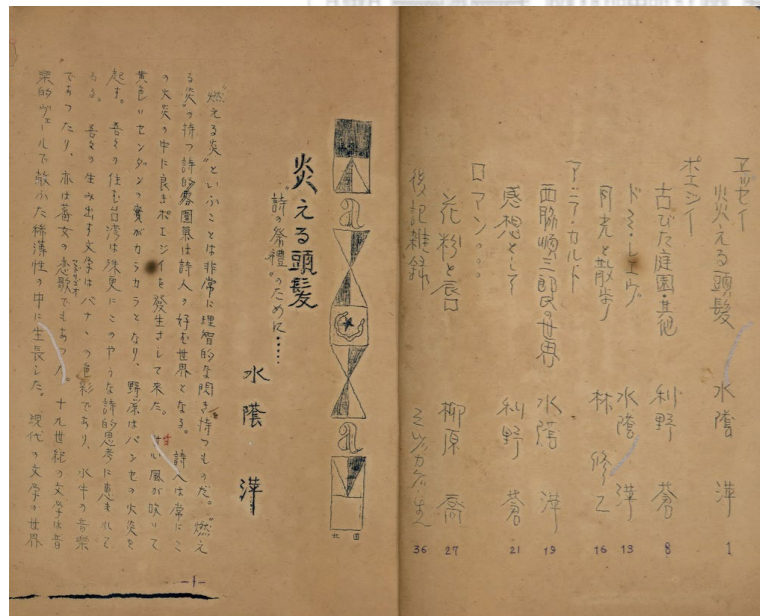 エッセイ
炎える頭髪 水蔭 萍 1
ポエシイ
古びた庭園・其他 利野 蒼 8
ドミ・レエヴ 水蔭 萍 13
月光と散歩 林 修二 16
アニア・カルト
西脇順三郎の世界 水蔭 萍 19
感想として 利野 蒼 21
ロマン。。。
花粉と唇 柳原 喬 27
後記雑録 36
炎える頭髪
"詩の祭禮"のために……
水蔭 萍
"燃える炎"といふことは非常に理智的な閃き持つものだ。"燃え
る炎"の持つ詩的雰囲気は詩人の好む世界となる。詩人は常にこ
の火炎の中に良きポエジイを発生さして来た。甘い風が吹いて
黄色いセンダンの実がカラカラとなり、野原はパンセの火炎を
起す。吾々の住む台湾は殊更にこのやうな詩的思考に恵まれて
ゐる。吾々の生み出す文学はバナヽの色彩であり、水牛の音楽
であつたり、亦は蕃女の恋歌でもあつた。十九世紀の文学は音
楽的ヴェールで蔽ふた稀薄性の中に生長した。現代の文学の世界
—1—